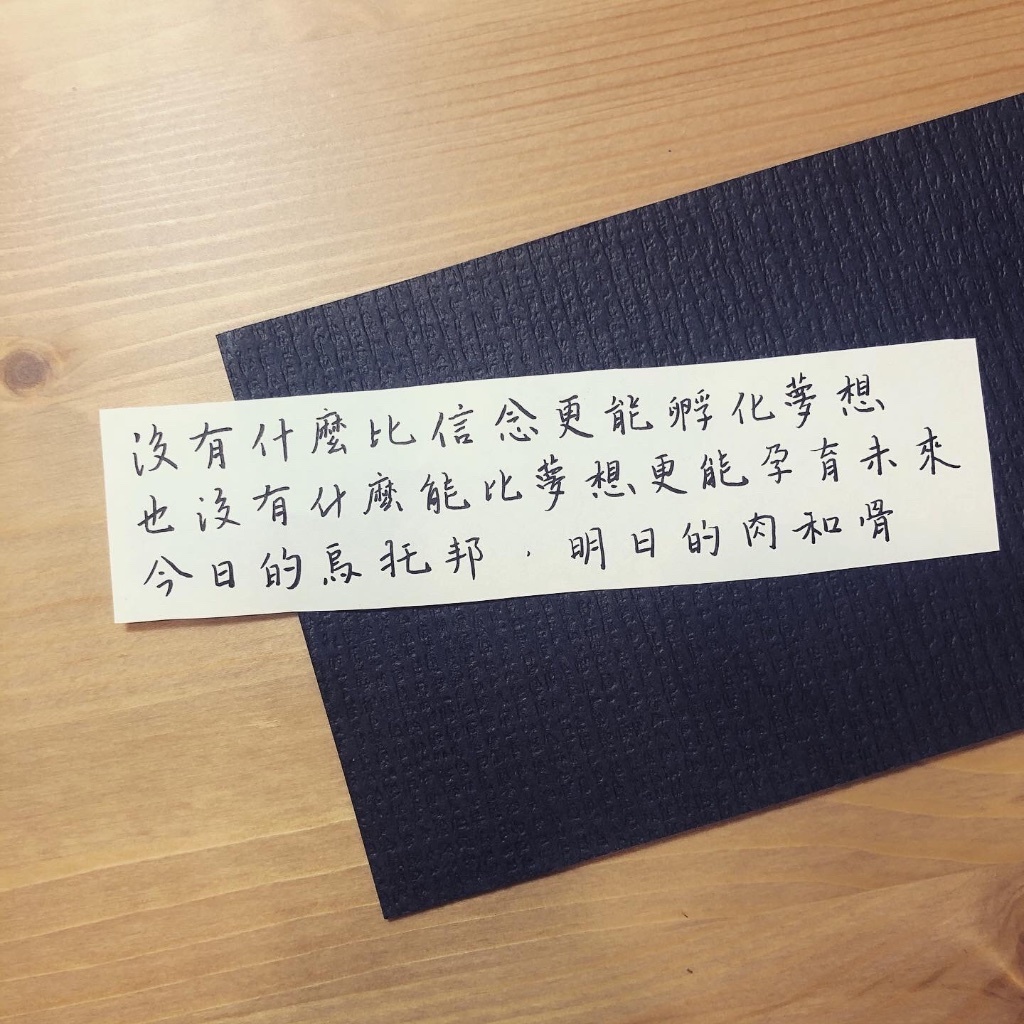 沒有什麼比信念更能孵化夢想
也沒有什麼能比夢想更能孕育未來
今日的烏托邦，明日的肉和骨